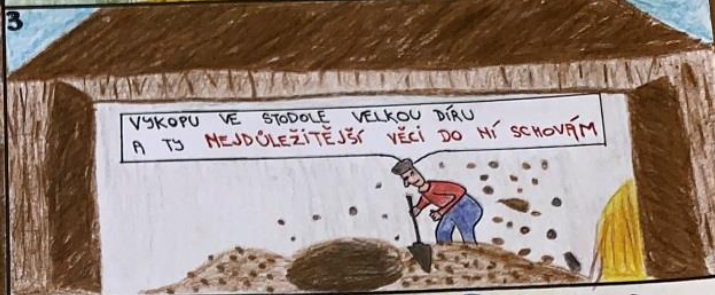 3
VYKOPU VE STODOLE VELKOU DÍRU
A TY NEJDŮLEŽITĚJŠÍ VĚCI DO NÍ SCHOVÁM